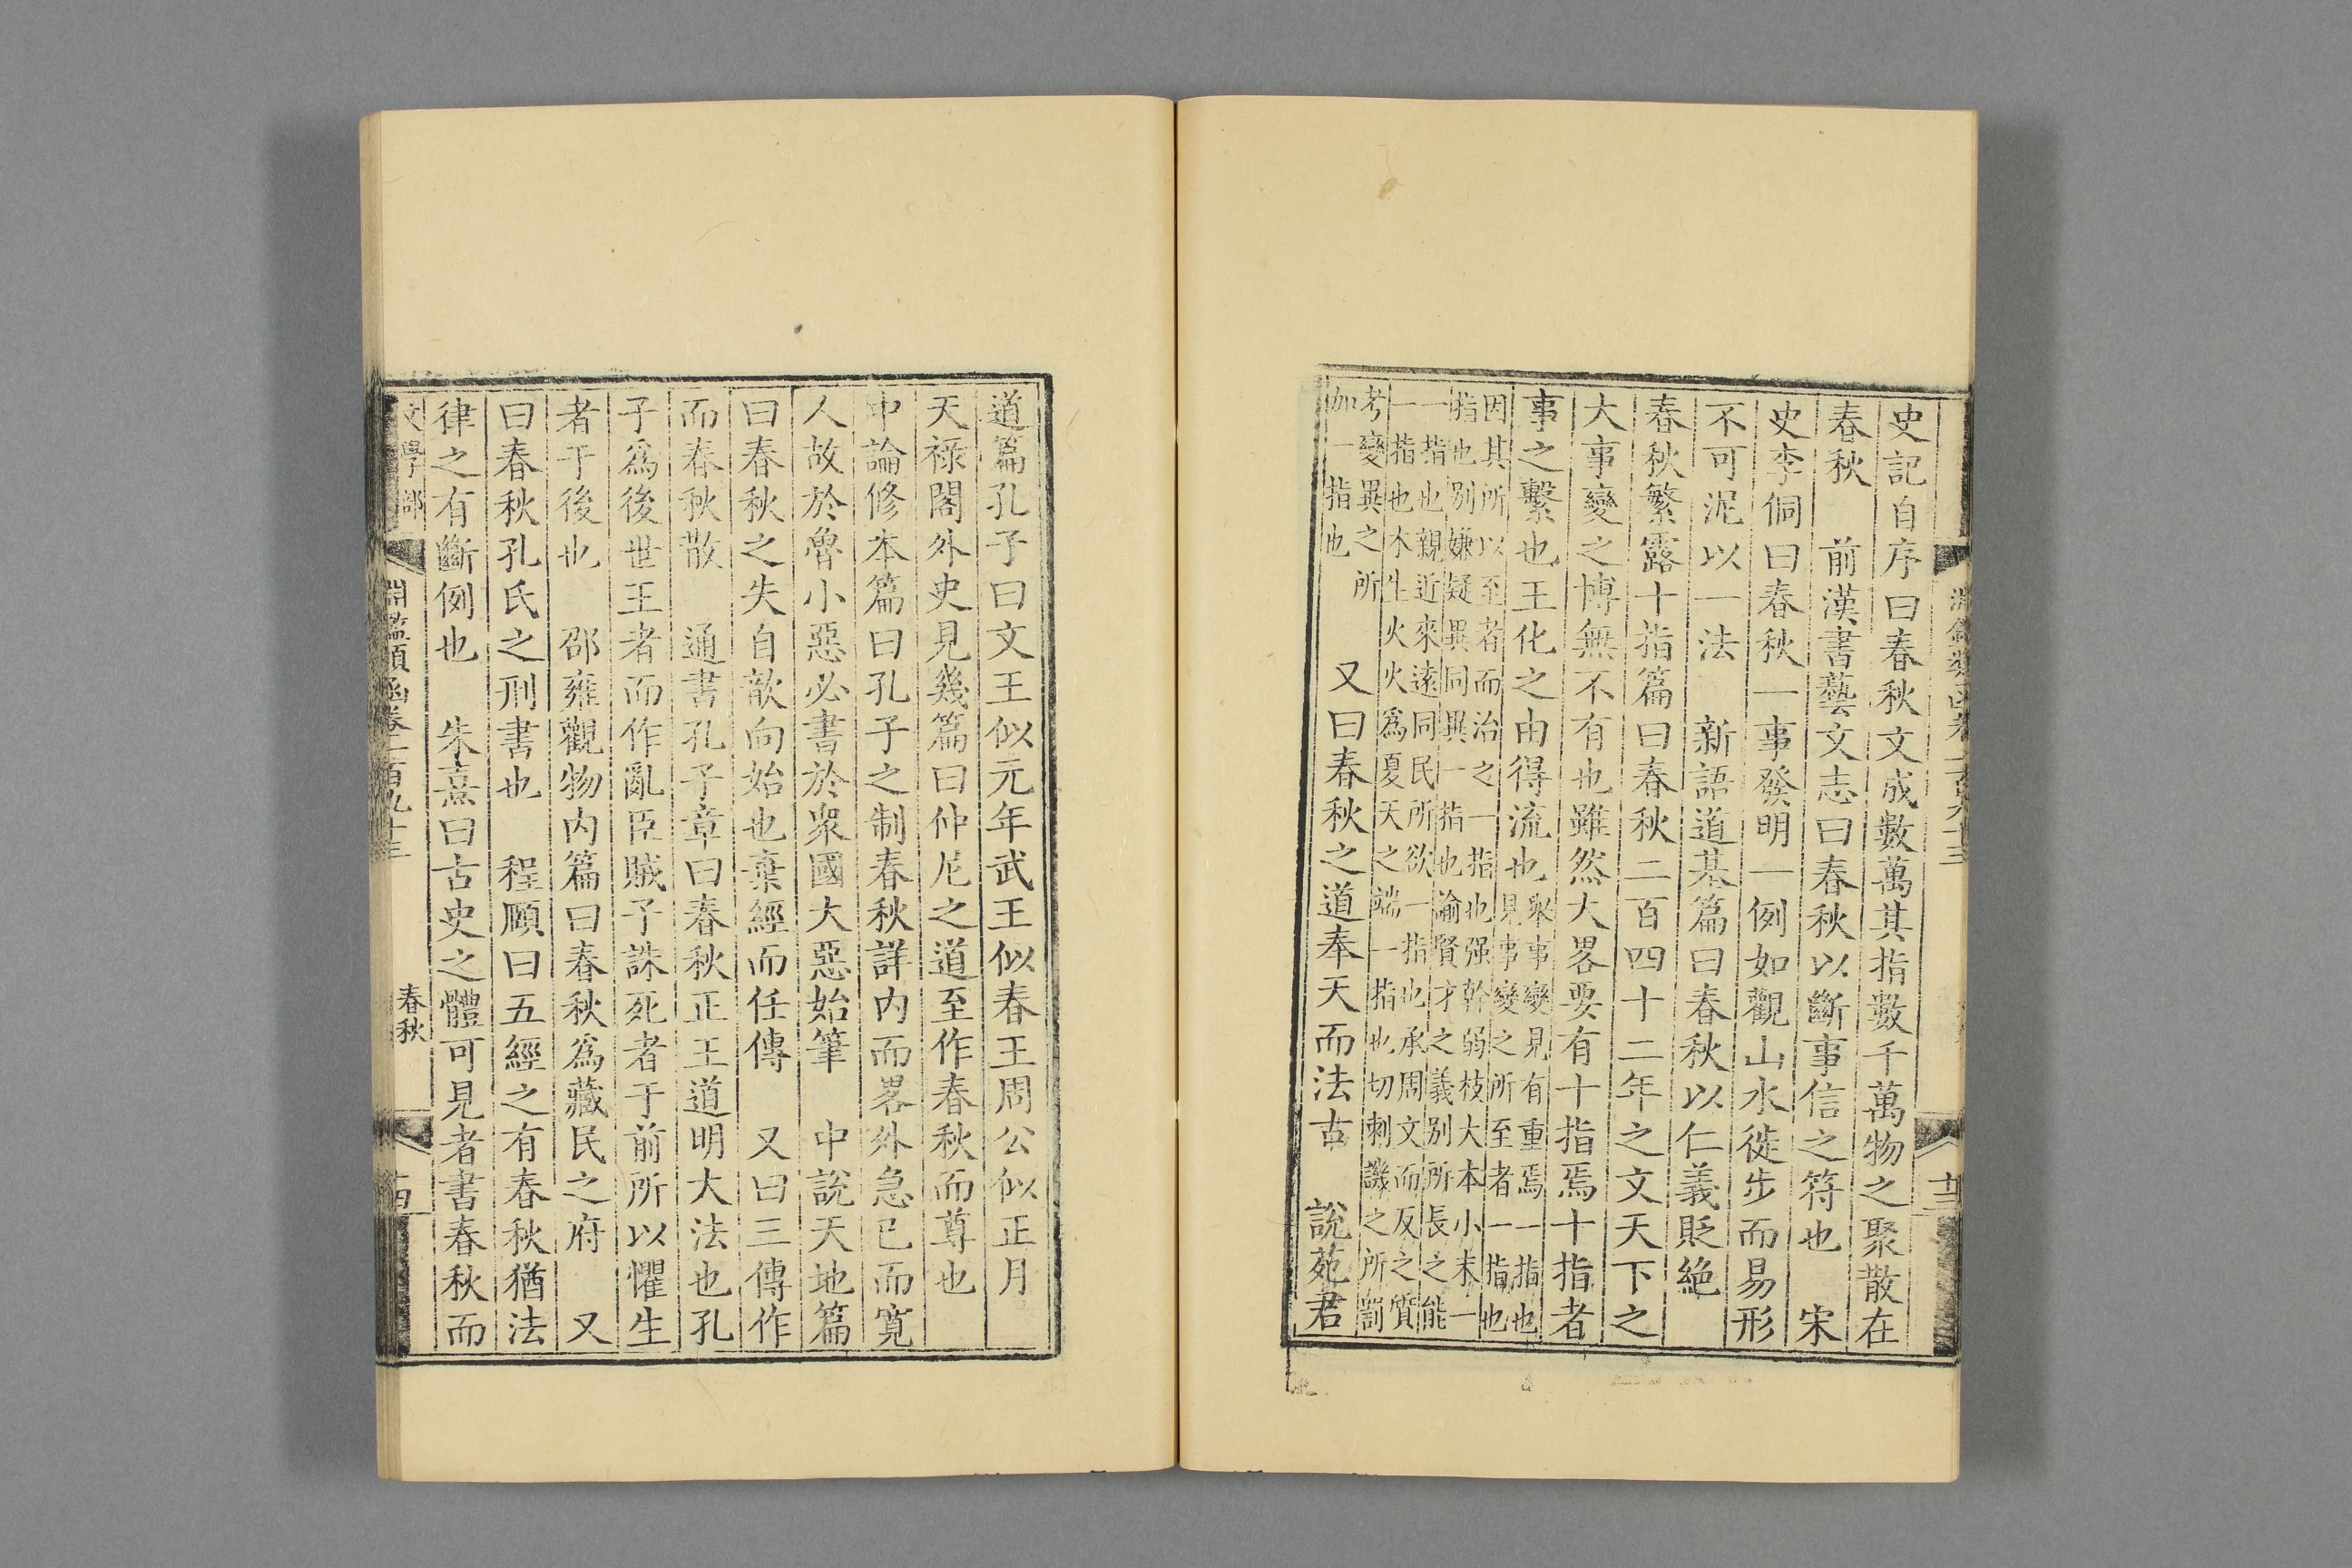 史記自序曰春秋文成數萬其指數千萬物之聚散在
春秋　前漢書藝文志曰春秋以斷事信之符也　宋
史李侗曰春秋一事發明一例如觀山水徙步而易形
不可泥以一法　新語道基篇曰春秋以仁義貶絶
春秋繁露十指篇曰春秋二百四十二年之文天下之
大事變之博無不有也雖然大畧要有十指焉十指者
事之繫也王化之由得流也舉事變見有重焉一指也
見事變之所至者一指也
因其所以至者而治之一指也强幹弱枝大本小末一
指也别嫌疑異同異一指也論賢才之義别所長之能
一指也親近來逺同民所欲一指也承周文而反之質
一指也木生火火爲夏天之端一指也切刺譏之所罰
考變異之所
加一指也　又曰春秋之道奉天而法古　說苑君
道篇孔子曰文王似元年武王似春王周公似正月
天祿閣外史見幾篇曰仲尼之道至作春秋而尊也
中論修本篇曰孔子之制春秋詳内而畧外急已而寛
人故於魯小惡必書於衆國大惡始筆　中說天地篇
曰春秋之失自歆向始也棄經而任傳　又曰三傳作
而春秋散　通書孔子章曰春秋正王道明大法也孔
子爲後世王者而作亂臣賊子誅死者于前所以懼生
者于後也　邵雍觀物内篇曰春秋爲藏民之府　又
曰春秋孔氏之刑書也　程頤曰五經之有春秋猶法
律之有斷例也　朱熹曰古史之體可見者書春秋而
文學部　淵鑑類函卷一百九十三　春秋　十四